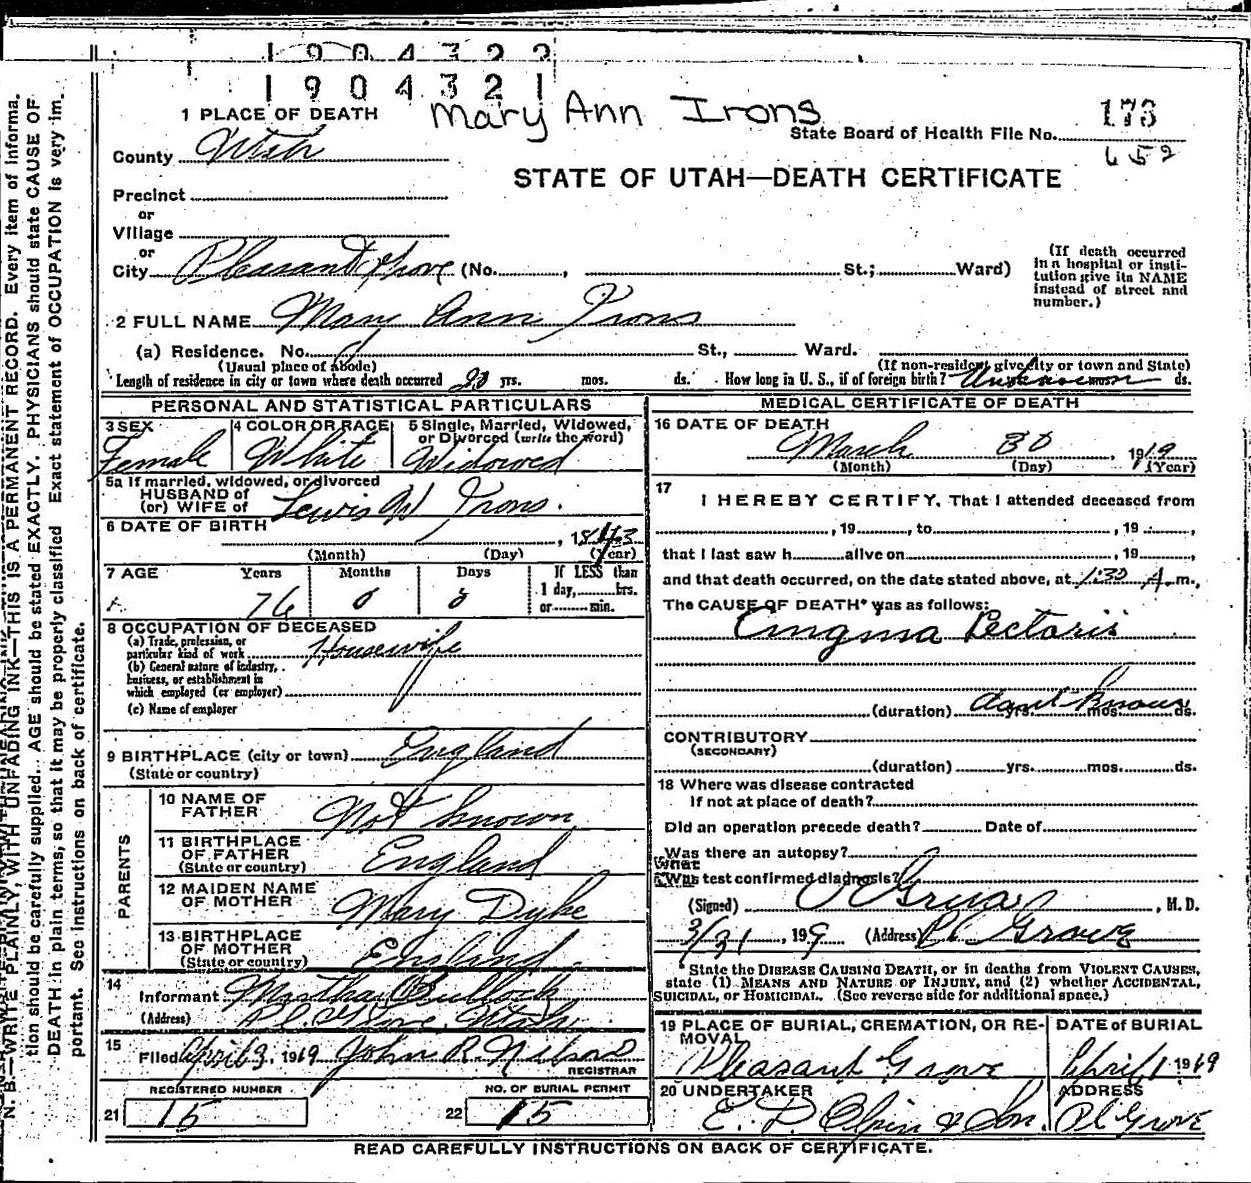 1904322
1904321
Mary Ann Irons
1 PLACE OF DEATH
State Board of Health File No. 173
652
County Utah
STATE OF UTAH—DEATH CERTIFICATE
Precinct
or
Village
or
City Pleasant Grove (No. , St.; Ward)
(If death occurred in a hospital or institution give its NAME instead of street and number.)
2 FULL NAME Mary Ann Irons
(a) Residence. No. St., Ward.
(Usual place of abode) (If non-resident give city or town and State)
Length of residence in city or town where death occurred yrs. mos. ds. How long in U. S., if of foreign birth? Unknown ds.
PERSONAL AND STATISTICAL PARTICULARS
3 SEX 4 COLOR OR RACE 5 Single, Married, Widowed, or Divorced (write the word)
Female White Widowed
5a If married, widowed, or divorced
HUSBAND of
(or) WIFE of Lewis W Irons.
6 DATE OF BIRTH , 1843
(Month) (Day) (Year)
7 AGE Years Months Days If LESS than
1 day, hrs.
or min.
76 0 0
8 OCCUPATION OF DECEASED
(a) Trade, profession, or particular kind of work Housewife
(b) General nature of industry, business, or establishment in which employed (or employer)
(c) Name of employer
9 BIRTHPLACE (city or town) England
(State or country)
PARENTS
10 NAME OF FATHER Not known
11 BIRTHPLACE OF FATHER England
(State or country)
12 MAIDEN NAME OF MOTHER Mary Dyke
13 BIRTHPLACE OF MOTHER England
(State or country)
14
Informant Martha Bullock
(Address) Pl. Grove, Utah.
15
Filed April 3, 1919 John R. REGISTRAR
REGISTERED NUMBER NO. OF BURIAL PERMIT
21 15 22 15
MEDICAL CERTIFICATE OF DEATH
16 DATE OF DEATH
March 30, 1919
(Month) (Day) (Year)
17
I HEREBY CERTIFY, That I attended deceased from
, 19 , to , 19 ,
that I last saw h alive on , 19 ,
and that death occurred, on the date stated above, at 1:30 A m.,
The CAUSE OF DEATH* was as follows:
Angina Pectoris
(duration) dont know yrs. mos. ds.
CONTRIBUTORY
(SECONDARY)
(duration) yrs. mos. ds.
18 Where was disease contracted
If not at place of death?
Did an operation precede death? Date of
Was there an autopsy?
What test confirmed diagnosis?
(Signed) , M. D.
3/31, 1919 (Address) Pl Grove
*State the DISEASE CAUSING DEATH, or in deaths from VIOLENT CAUSES,
state (1) MEANS AND NATURE OF INJURY, and (2) whether ACCIDENTAL,
SUICIDAL, or HOMICIDAL. (See reverse side for additional space.)
19 PLACE OF BURIAL, CREMATION, OR REMOVAL DATE OF BURIAL
Pleasant Grove April 1 1919
20 UNDERTAKER ADDRESS
E. D. Olpin & Son. Pl Grove
READ CAREFULLY INSTRUCTIONS ON BACK OF CERTIFICATE.
N. B.—WRITE PLAINLY, WITH UNFADING INK—THIS IS A PERMANENT RECORD. Every item of informa-
tion should be carefully supplied. AGE should be stated EXACTLY. PHYSICIANS should state CAUSE OF
DEATH in plain terms, so that it may be properly classified. Exact statement of OCCUPATION is very im-
portant. See instructions on back of certificate.